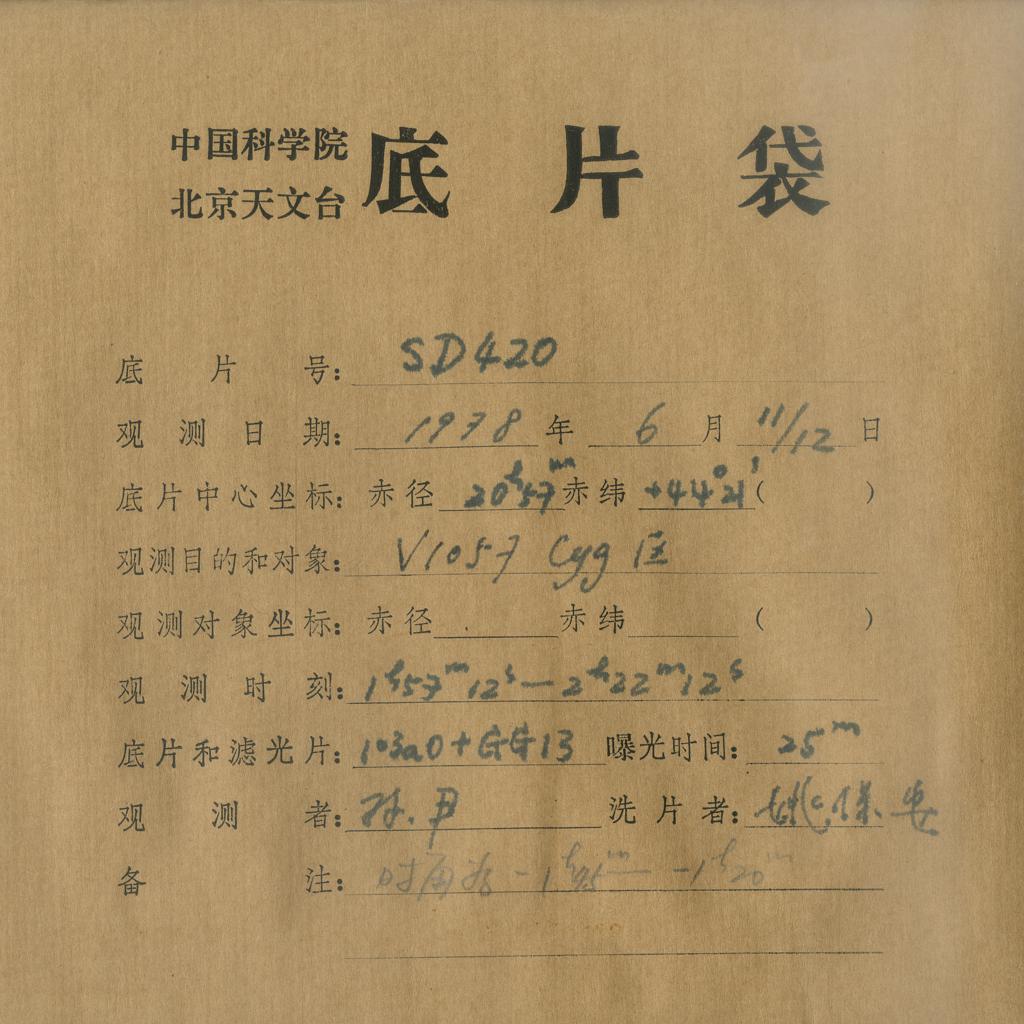 中国科学院
北京天文台 底片袋
底片号: SD420
观测日期: 1978年 6月 11/12日
底片中心坐标: 赤径 20h57m 赤纬 +44°21′( )
观测目的和对象: V1057 Cyg 区
观测对象坐标: 赤径 赤纬 ( )
观测时刻: 1h57m12s—2h22m12s
底片和滤光片: 103aO+GG13 曝光时间: 25m
观测者: 孙.尹 洗片者: 姚保安
备注: 时角为 -1h45m — -1h20m